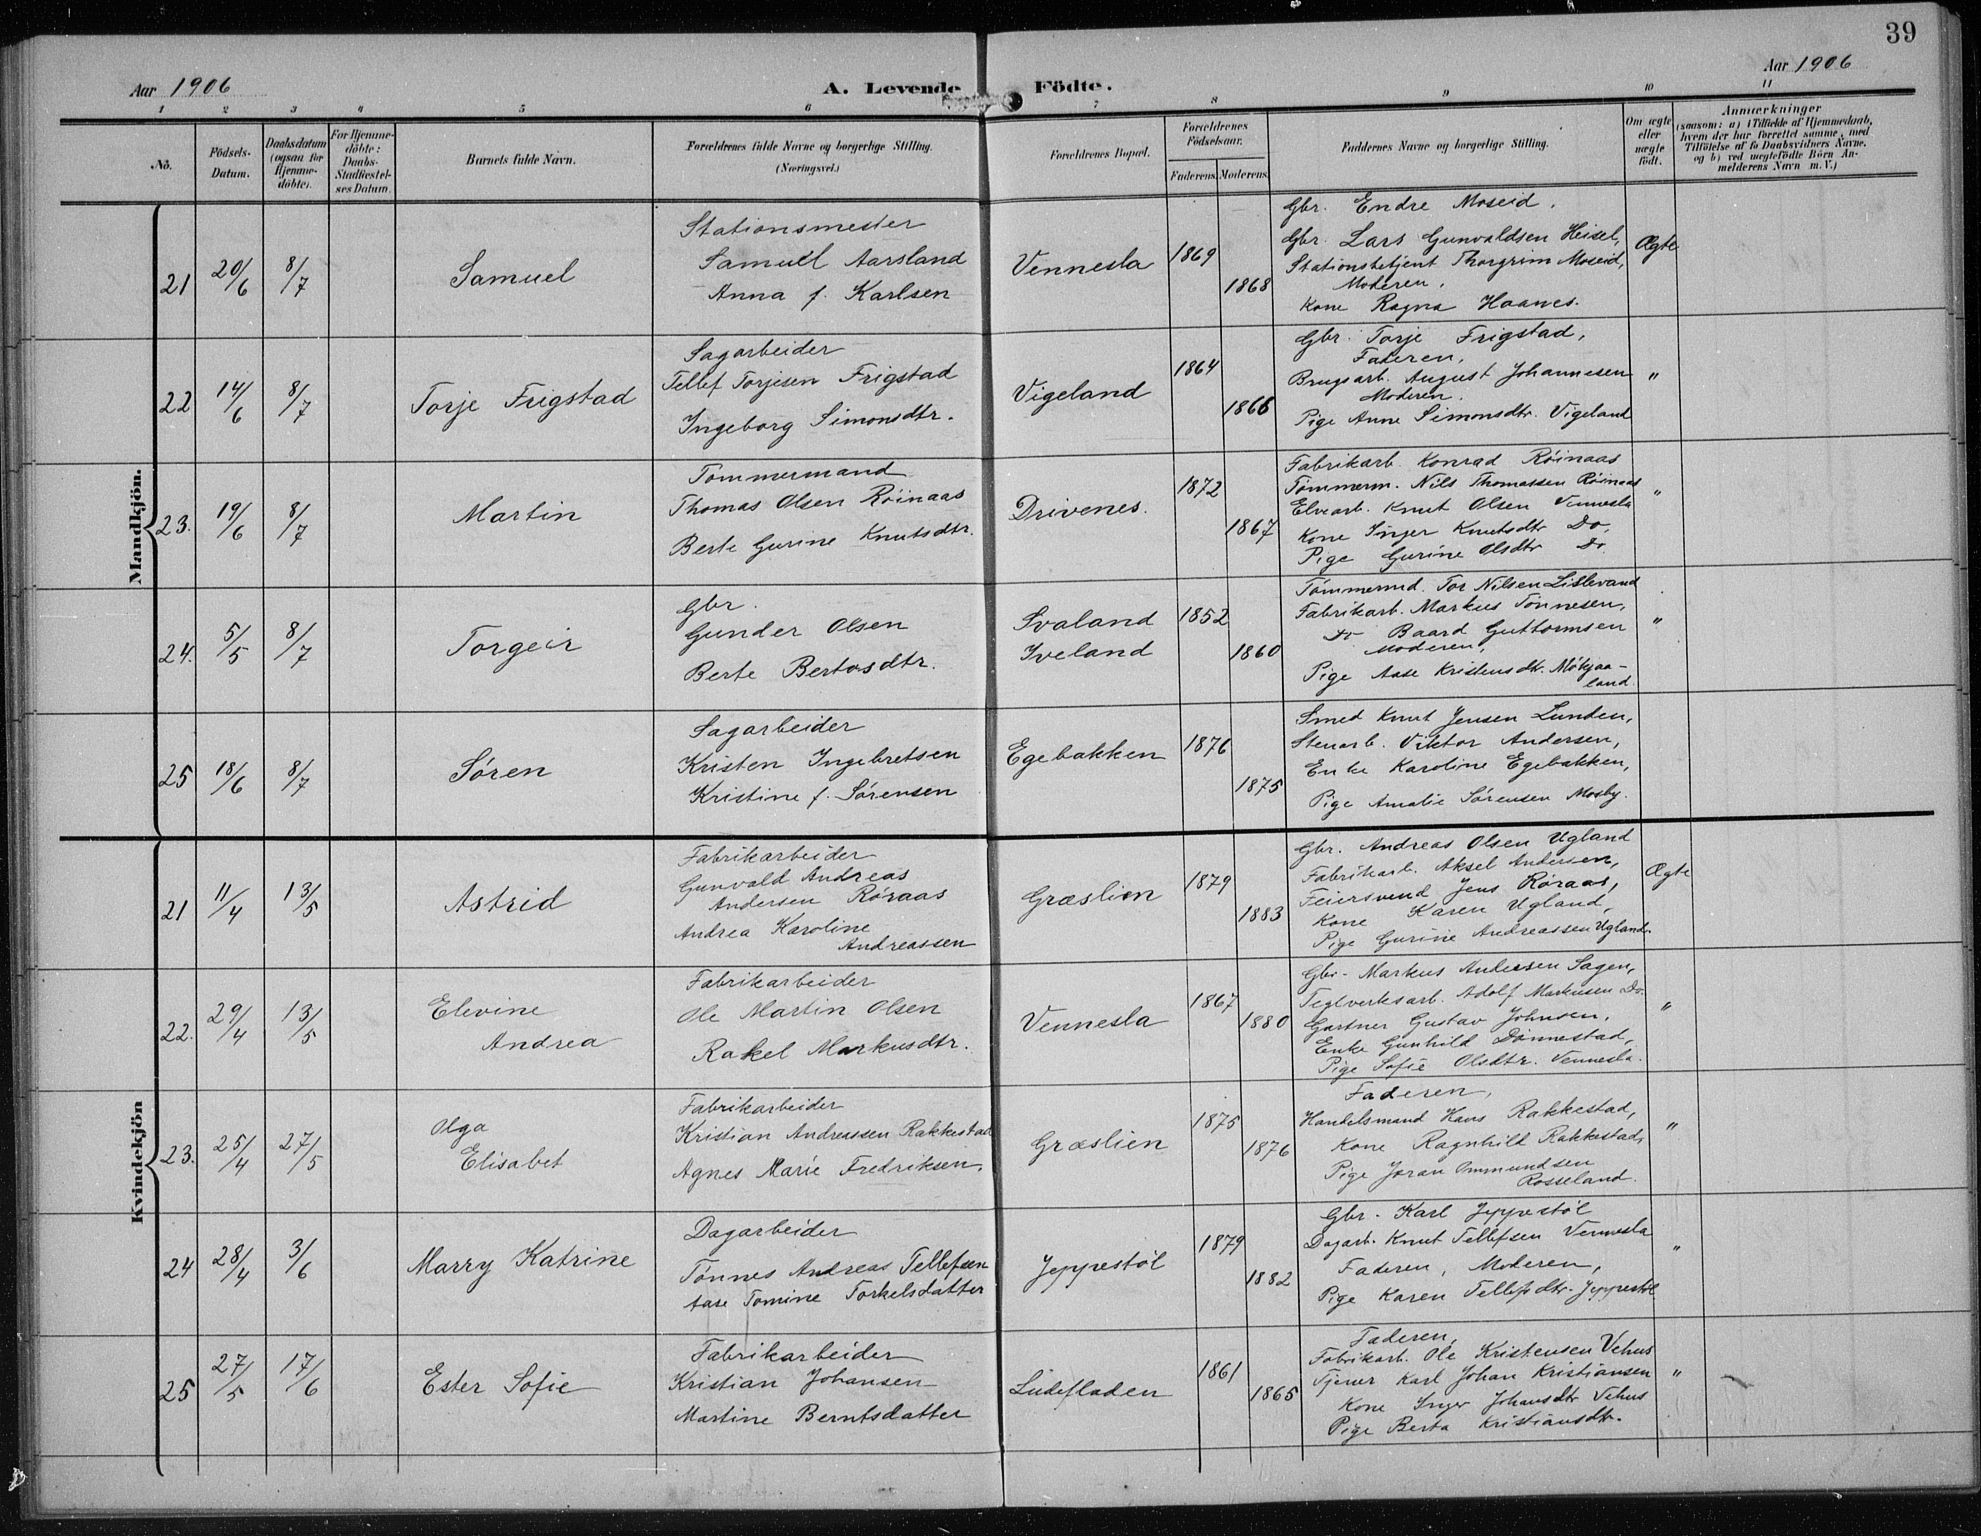 39
Aar 1906
A. Levende Födte.
Aar 1906
1 2 3 4 5 6 7 8 9 10 11
No.
Födsels-Datum.
Daabsdatum (ogsaa for Hjemme-döbte).
For Hjemme-döbte: Daabs-Stadfæstel-ses Datum.
Barnets fulde Navn.
Forældrenes fulde Navne og borgerlige Stilling.
(Næringsvei.)
Forældrenes Bopæl.
Forældrenes Födselsaar.
Faderens. Moderens.
Faddernes Navne og borgerlige Stilling.
Om ægte eller uægte födt.
Anmærkninger
(saasom: a) i Tilfælde af Hjemmedaab, hvem der har forrettet samme, med Tilföielse af to Daabsvidners Navne, og b) ved uægtefödte Börn An-melderens Navn m. V.)
Mandkjön.
21 20/6 8/7
Samuel
Stationsmester
Samuel Aarsland
Anna f. Karlsen
Vennesla
1869
1868
Gbr. Endre Moseid.
Gbr. Lars Gunvaldsen Heisel,
Stationsbetjent Thorgrim Moseid,
Moderen,
Kone Ragna Haanes.
Ægte
22 14/6 8/7
Torje Frigstad
Sagarbeider
Tellef Torjesen Frigstad
Ingeborg Simonsdtr.
Vigeland
1864
1866
Gbr. Torje Frigstad,
Faderen,
Brugsarb. August Johannesen
Moderen.
Pige Anne Simonsdtr. Vigeland
"
23. 19/6 8/7
Martin
Tømmermand
Thomas Olsen Röinaas
Berte Gurine Knutsdtr.
Drivenes.
1872
1867
Fabrikarb. Konrad Röinaas
Tømmerm. Nils Thomassen Röinaas
Elvearb. Knut Olsen Vennesla
Kone Inger Knutsdtr Do,
Pige Gurine Olsdtr Do
"
24. 5/5 8/7
Torgeir
Gbr.
Gunder Olsen
Berte Bertosdtr.
Svaland
Iveland
1852
1860
Tömmermd. Tor Nilsen Lislevand
Fabrikarb. Markus Tönnesen,
Do Baard Guttormsen
Moderen,
Pige Aase Kristensdtr. Mökjaa-
land.
"
25 18/6 8/7
Søren
Sagarbeider
Kristen Ingebretsen
Kristine f. Sørensen
Egebakken
1876
1875
Smed Knut Jensen Lunden,
Stenarb. Viktor Andersen,
Enke Karoline Egebakken,
Pige Amalie Sørensen Mosby.
Kvindekjön
21 11/4 13/5
Astrid
Fabrikarbeider
Gunvald Andreas
Andersen Røraas
Andrea Karoline
Andreassen
Græslien
1879
1883
Gbr. Andreas Olsen Ugland
Fabrikarb. Aksel Andersen,
Feiersvend Jens Røraas,
Kone Karen Ugland,
Pige Gurine Andreassen Ugland.
Ægte
22. 29/4 13/5
Elevine
Andrea
Fabrikarbeider
Ole Martin Olsen
Rakel Markusdtr.
Vennesla
1867
1880
Gbr. Markus Andersen Sagen,
Teglverksarb. Adolf Markusen Do.
Gartner Gustav Johnsen,
Enke Gunhild Dönnestad,
Pige Sofie Olsdtr. Vennesla.
"
23. 25/4 27/5
Olga
Elisabet
Fabrikarbeider
Kristian Andreassen Rakkestad
Agnes Marie Fredriksen.
Græslien
1875
1876
Faderen,
Handelsmand Hans Rakkestad,
Kone Ragnhild Rakkestad,
Pige Joran Ommundsen
Rosseland.
"
24 28/4 3/6
Marry Katrine
Dagarbeider
Tønnes Andreas Tellefsen
Aase Tomine Torkelsdatter
Jeppestøl
1879
1882
Gbr. Karl Jeppestøl
Dagarb. Knut Tellefsen Vennesla
Faderen, Moderen,
Pige Karen Tellefsdtr. Jeppestøl
"
25 27/5 17/6
Ester Sofie
Fabrikarbeider
Kristian Johansen
Martine Berntsdatter
Lindefladen
1861
1865
Faderen,
Fabrikarb. Ole Kristensen Vehus
Tjener Karl Johan Kristiansen
Kone Inger Johansdtr Vehus
Pige Berta Kristiansdtr.
"